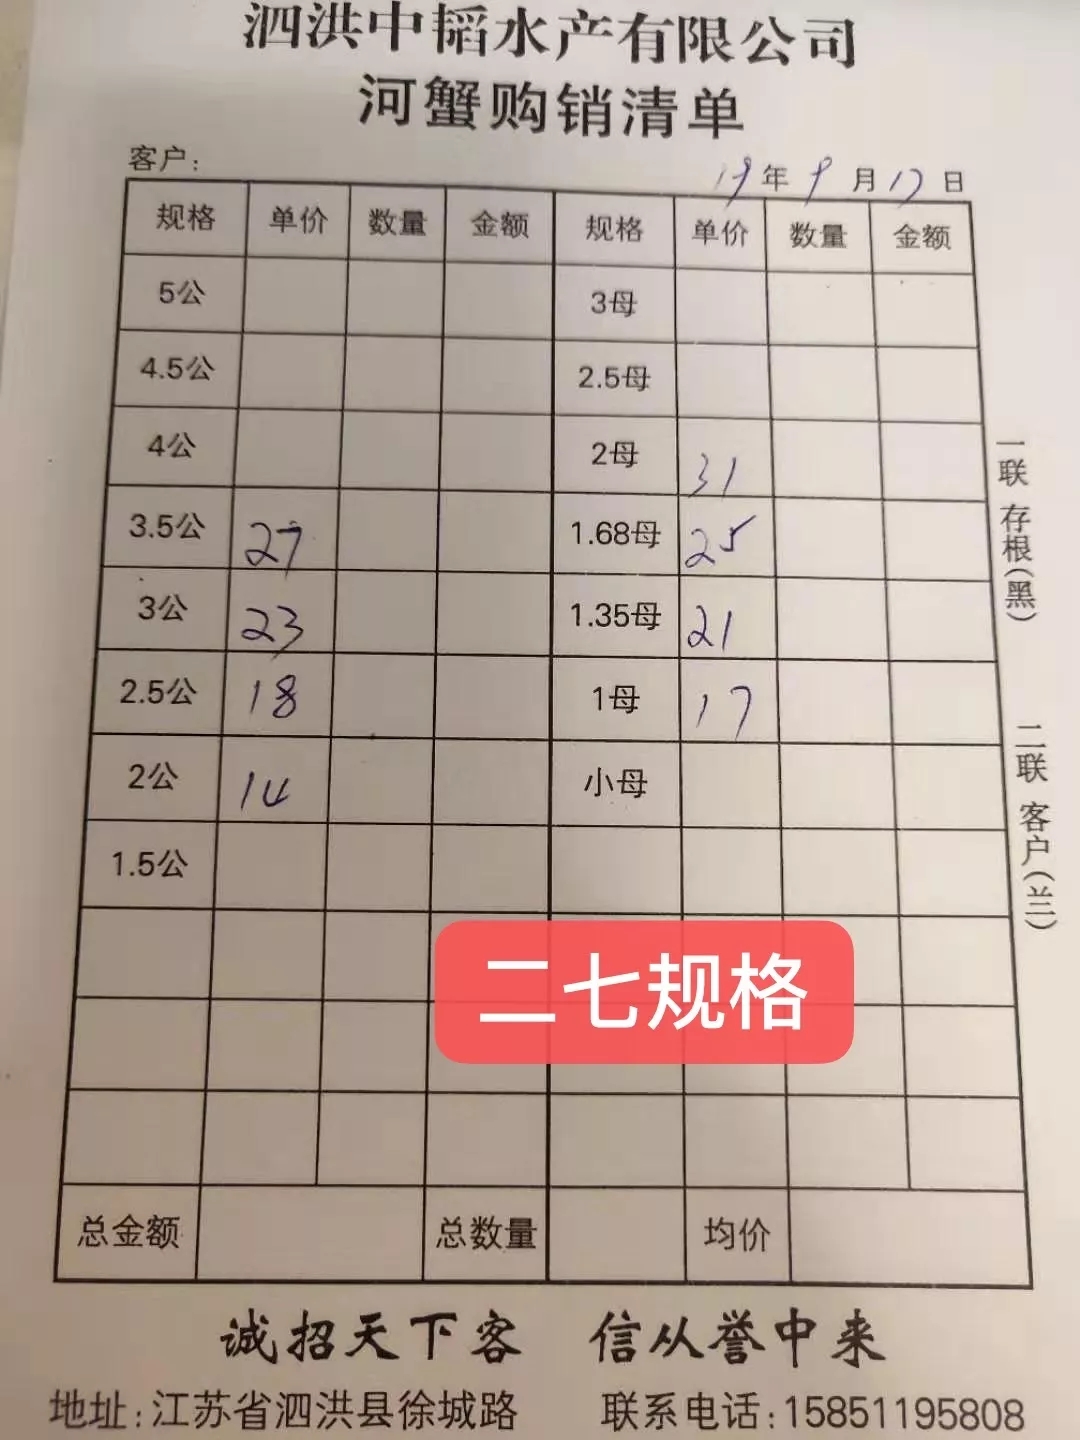 泗洪中韬水产有限公司
河蟹购销清单
客户: 19年9月17日
规格 单价 数量 金额 规格 单价 数量 金额
5公 3母
4.5公 2.5母
4公 2母 31
3.5公 27 1.68母 25
3公 23 1.35母 21
2.5公 18 1母 17
2公 14 小母
1.5公
二七规格
总金额 总数量 均价
一联 存根(黑)
二联 客户(兰)
诚招天下客 信从誉中来
地址:江苏省泗洪县徐城路 联系电话:15851195808